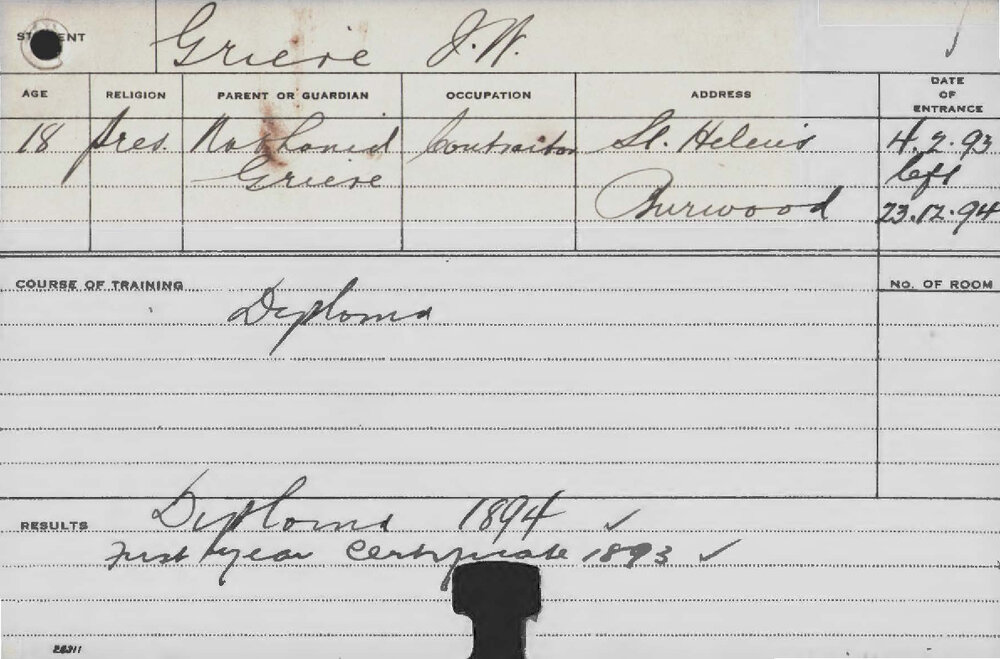 STUDENT Grieve J. W.
AGE RELIGION PARENT OR GUARDIAN OCCUPATION ADDRESS DATE OF ENTRANCE
18 Pres. Nathaniel Contractor St. Helens 4.2.93
Grieve left
Burwood 23.12.94
COURSE OF TRAINING NO. OF ROOM
Diploma
RESULTS Diploma 1894 ✓
First year Certificate 1893 ✓
28311